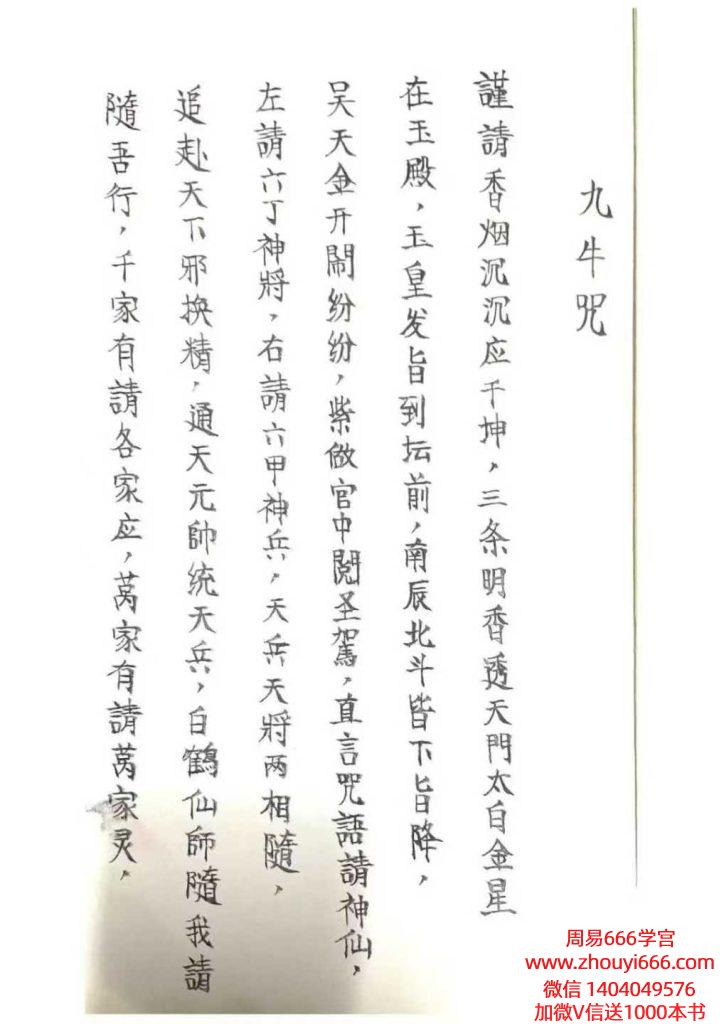 九牛咒
謹請香烟沉沉应干坤，三条明香透天門太白金星
在玉殿，玉皇发旨到坛前，南辰北斗皆下旨降，
吴天金开鬧纷纷，紫做官中閲圣駕，直言咒語請神仙，
左請六丁神將，右請六甲神兵，天兵天將两相隨，
追赴天下邪换精，通天元帥统天兵，白鶴仙師隨我請
隨吾行，千家有請各家应，萬家有請萬家灵，
周易666学宫
www.zhouyi666.com
微信 1404049576
加微V信送1000本书